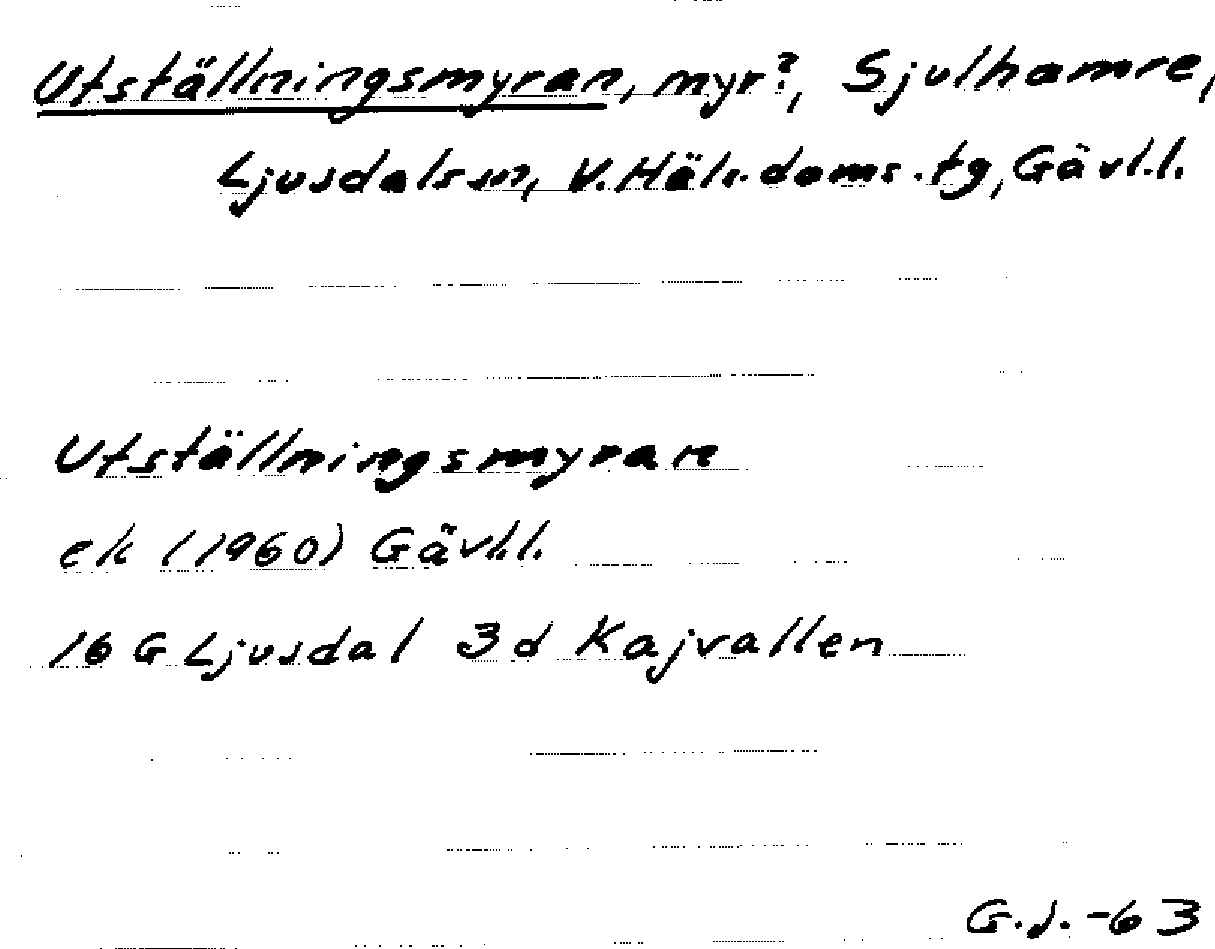 Utställningsmyran, myr?, Sjulhamre,
Ljusdals sn, V. Häls. doms. tg, Gävl.l.
Utställningsmyran
ek (1960) Gävl.l.
16 G Ljusdal 3 d Kajvallen
G.J. -63